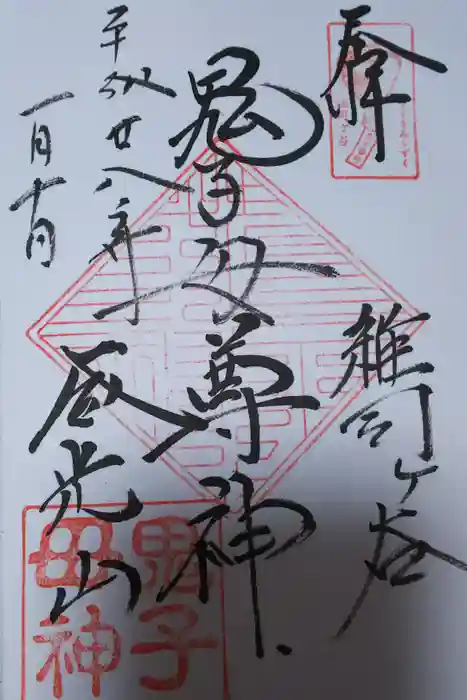 拝
雑司ヶ谷
鬼子母尊神
平成廿八年
一月十日
威光山
鬼子
母神